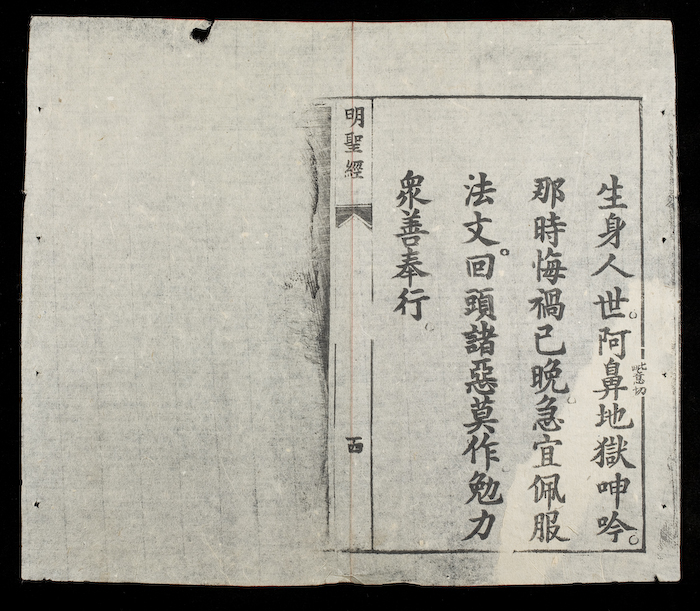 生身人世。阿鼻地獄呻吟。
那時悔禍已晚。急宜佩服
法文。回頭諸惡莫作勉力
衆善奉行。
明聖經